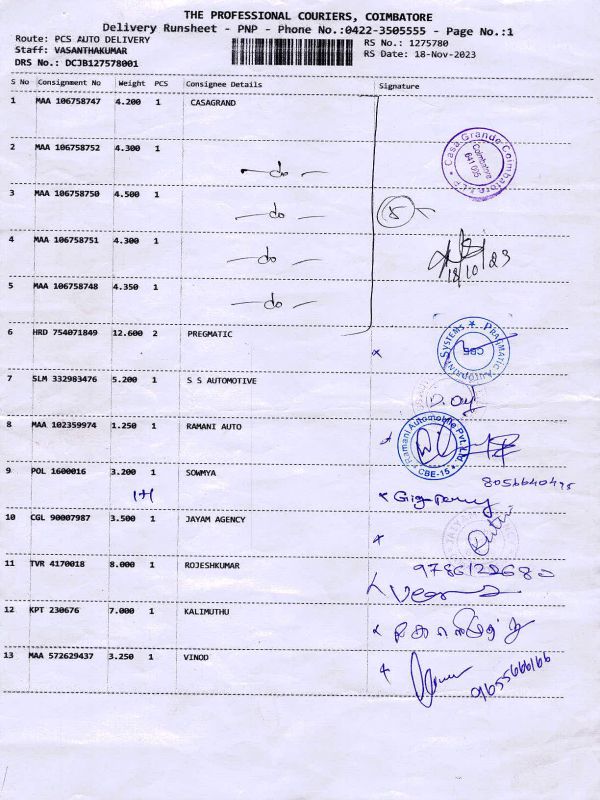 THE PROFESSIONAL COURIERS, COIMBATORE
Delivery Runsheet - PNP - Phone No.:0422-3505555 - Page No.:1
Route: PCS AUTO DELIVERY
RS No.: 1275780
Staff: VASANTHAKUMAR
RS Date: 18-Nov-2023
DRS No.: DCJB127578001
S No Consignment No Weight PCS Consignee Details Signature
1 MAA 106758747 4.200 1 CASAGRAND
2 MAA 106758752 4.300 1 - do -
Casa Grande Coimbatore LLP
Coimbatore
641 035
3 MAA 106758750 4.500 1 - do - 5
4 MAA 106758751 4.300 1 - do -
18/10/23
5 MAA 106758748 4.350 1 - do -
6 HRD 754071849 12.600 2 PREGMATIC
CBE
7 SLM 332983476 5.200 1 S S AUTOMOTIVE
8 MAA 102359974 1.250 1 RAMANI AUTO
Ramani Automobile Pvt.Ltd
CBE-15
9 POL 1600016 3.200 1 SOWMYA
1+1
10 CGL 90007987 3.500 1 JAYAM AGENCY
11 TVR 4170018 8.000 1 ROJESHKUMAR
12 KPT 230676 7.000 1 KALIMUTHU
13 MAA 572629437 3.250 1 VINOD